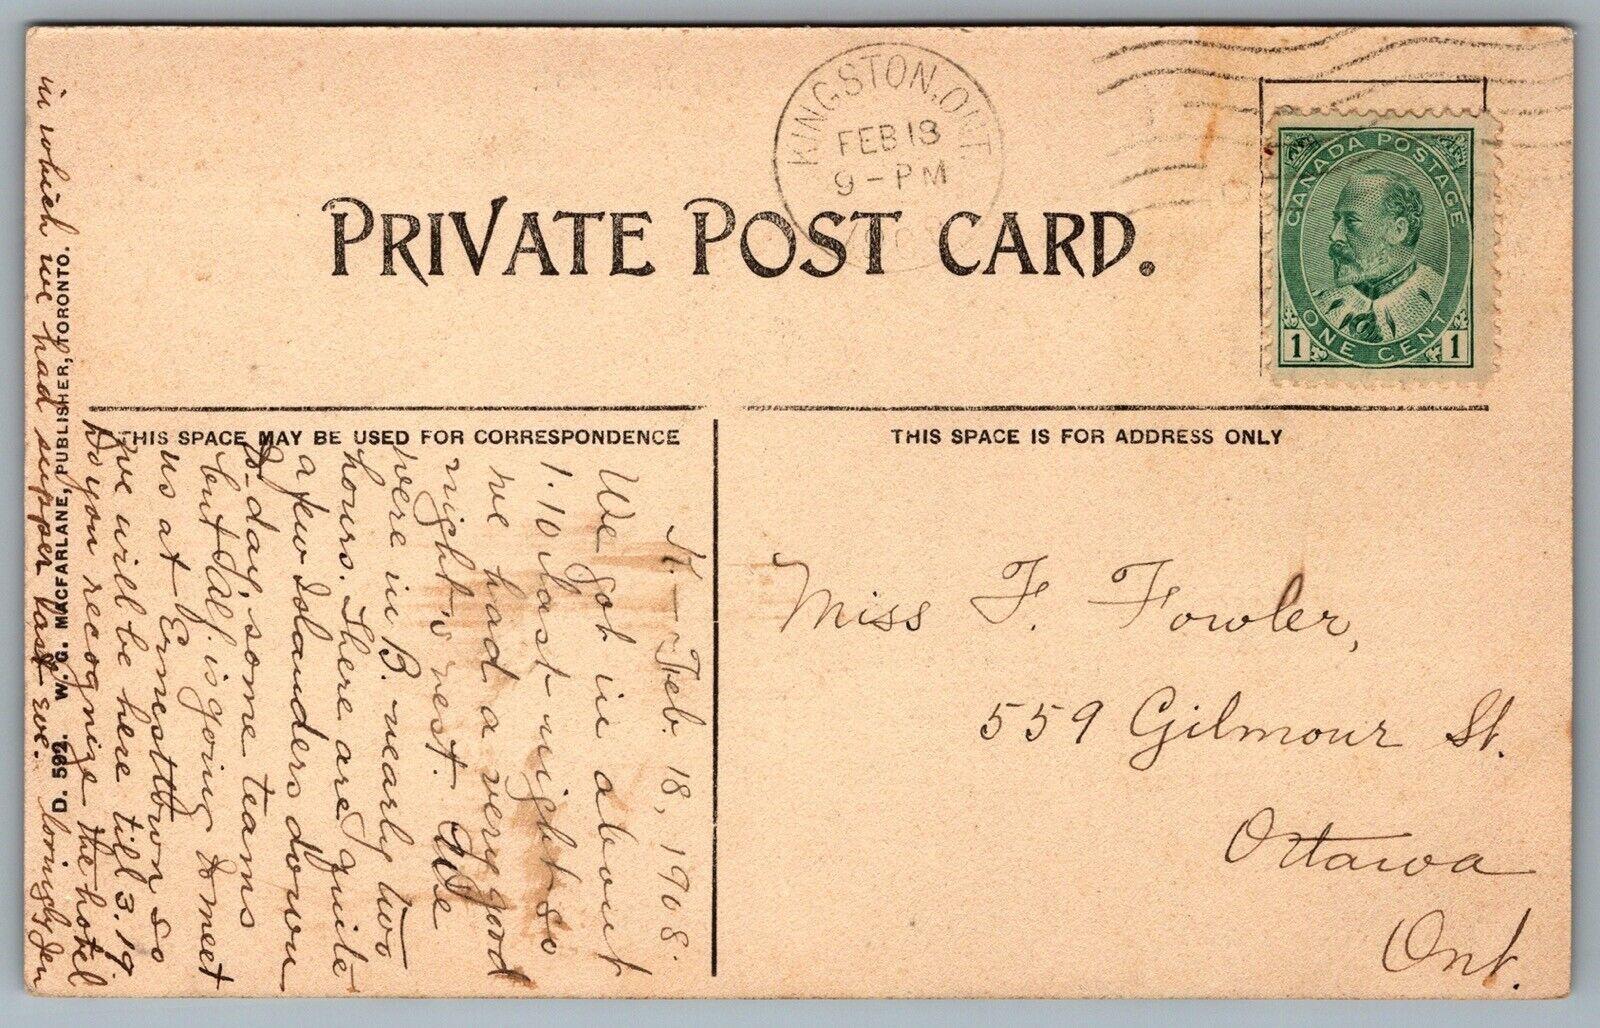 KINGSTON, ONT.
FEB 18
9 - PM
PRIVATE POST CARD.
CANADA POSTAGE
ONE CENT
1 1
THIS SPACE MAY BE USED FOR CORRESPONDENCE
THIS SPACE IS FOR ADDRESS ONLY
K. - Feb. 18, 1908.
We got in about
1.10 last night so
we had a very good
night's rest. We
were in B. nearly two
hours. There are quite
a few Islanders down
to-day, some teams
but Alf. is going to meet
us at Ernesttown so
we will be here till 3.19
Do you recognize the hotel
in which we had supper last eve. lovingly Jen
Miss F. Fowler,
559 Gilmour St.
Ottawa
Ont.
D. 592. W. G. MACFARLANE, PUBLISHER, TORONTO.